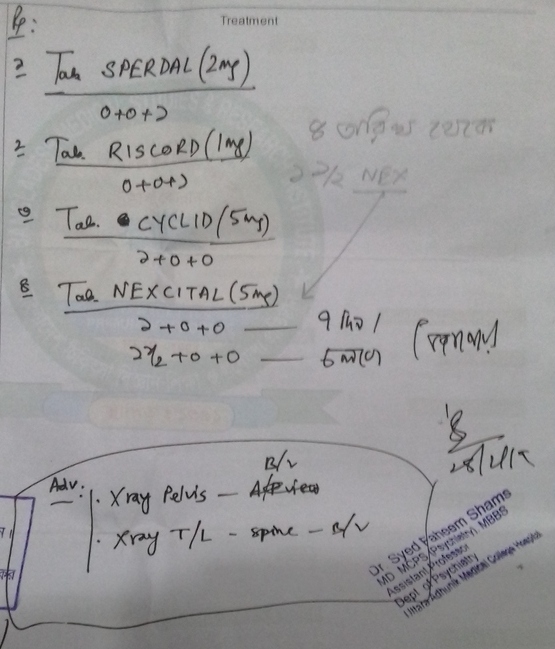 Treatment
Rp:
১ Tab. SPERDAL (2mg)
0+0+১
২ Tab. RISCORD (1mg)
0+0+১
৩ Tab. CYCLID (5mg)
১+0+0
৪ Tab. NEXCITAL (5mg)
১+0+0 —
১½+0+0 — চলবে
৪ তারিখ থেকে
১½ NEX
B/V
Adv: . Xray Pelvis —
. Xray T/L - spine - B/V
Dr Syed Faheem Shams
MD MCPS (Psychiatry) MBBS
Assistant Professor
Dept of Psychiatry
Uttara Adhunik Medical College Hospital